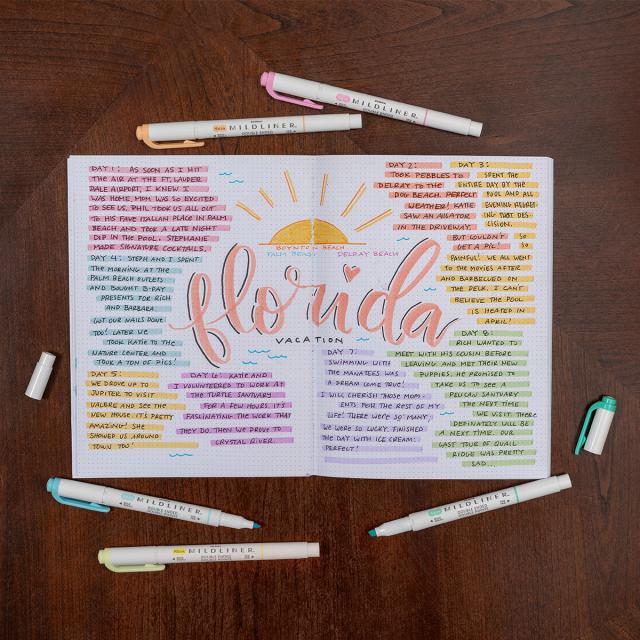 MILDLINER
MILDLINER
DAY 1: AS SOON AS I HIT
THE AIR AT THE FT. LAUDER
DALE AIRPORT, I KNEW I
WAS HOME. MOM WAS SO EXCITED
TO SEE US. PHIL TOOK US ALL OUT
TO HIS FAVE ITALIAN PLACE IN PALM
BEACH AND TOOK A LATE NIGHT
DIP IN THE POOL. STEPHANIE
MADE SIGNATURE COCKTAILS.
DAY 4: STEPH AND I SPENT
THE MORNING AT THE
PALM BEACH OUTLETS
AND BOUGHT B-DAY
PRESENTS FOR RICH
AND BARBARA
GOT OUR NAILS DONE
TOO! LATER WE
TOOK KATIE TO THE
NATURE CENTER AND
TOOK A TON OF PICS!
DAY 5:
WE DROVE UP TO
JUPITER TO VISIT
VALERIE AND SEE THE
NEW HOUSE. PRETTY
AMAZING! SHE
SHOWED US AROUND
TOWN TOO!
DAY 6: KATIE AND
I VOLUNTEERED TO WORK AT
THE TURTLE SANTUARY
FOR A FEW HOURS. IT'S
FASCINATING THE WORK THAT
THEY DO. THEN WE DROVE TO
CRYSTAL RIVER
BOYNTON BEACH
PALM BEACH DELRAY BEACH
florida
VACATION
DAY 2:
TOOK PEBBLES TO
DELRAY TO THE
DOG BEACH. PERFECT
WEATHER! KATIE
SAW AN ALIGATOR
IN THE DRIVEWAY
BUT COULDN'T
GET A PIC!
DAY 3:
SPENT THE
ENTIRE DAY BY THE
POOL AND ALL
EVENING REGRET
ING THAT DES-
CISION.
SO
SO
PAINFUL! WE ALL WENT
TO THE MOVIES AFTER
AND BARBEQUED ON
THE DECK. I CAN'T
BELIEVE THE POOL
IS HEATED IN
APRIL!
DAY 7:
SWIMMING WITH
THE MANATEES WAS
A DREAM COME TRUE!
I WILL CHERISH THOSE MOM-
ENTS FOR THE REST OF MY
LIFE! THERE WE'RE SO MANY,
WE WERE SO LUCKY. FINISHED
THE DAY WITH ICE CREAM.
PERFECT!
DAY 8:
RICH WANTED TO
MEET WITH HIS COUSIN BEFORE
LEAVING AND MET THEIR NEW
PUPPIES. HE PROMISED TO
TAKE US TO SEE A
PELICAN SANTUARY
THE NEXT TIME
WE VISIT. THERE
DEFINATELY WILL BE
A NEXT TIME. OUR
LAST TOUR OF QUAIL
RIDGE WAS PRETTY
SAD...
MILDLINER
MILDLINER
MILDLINER